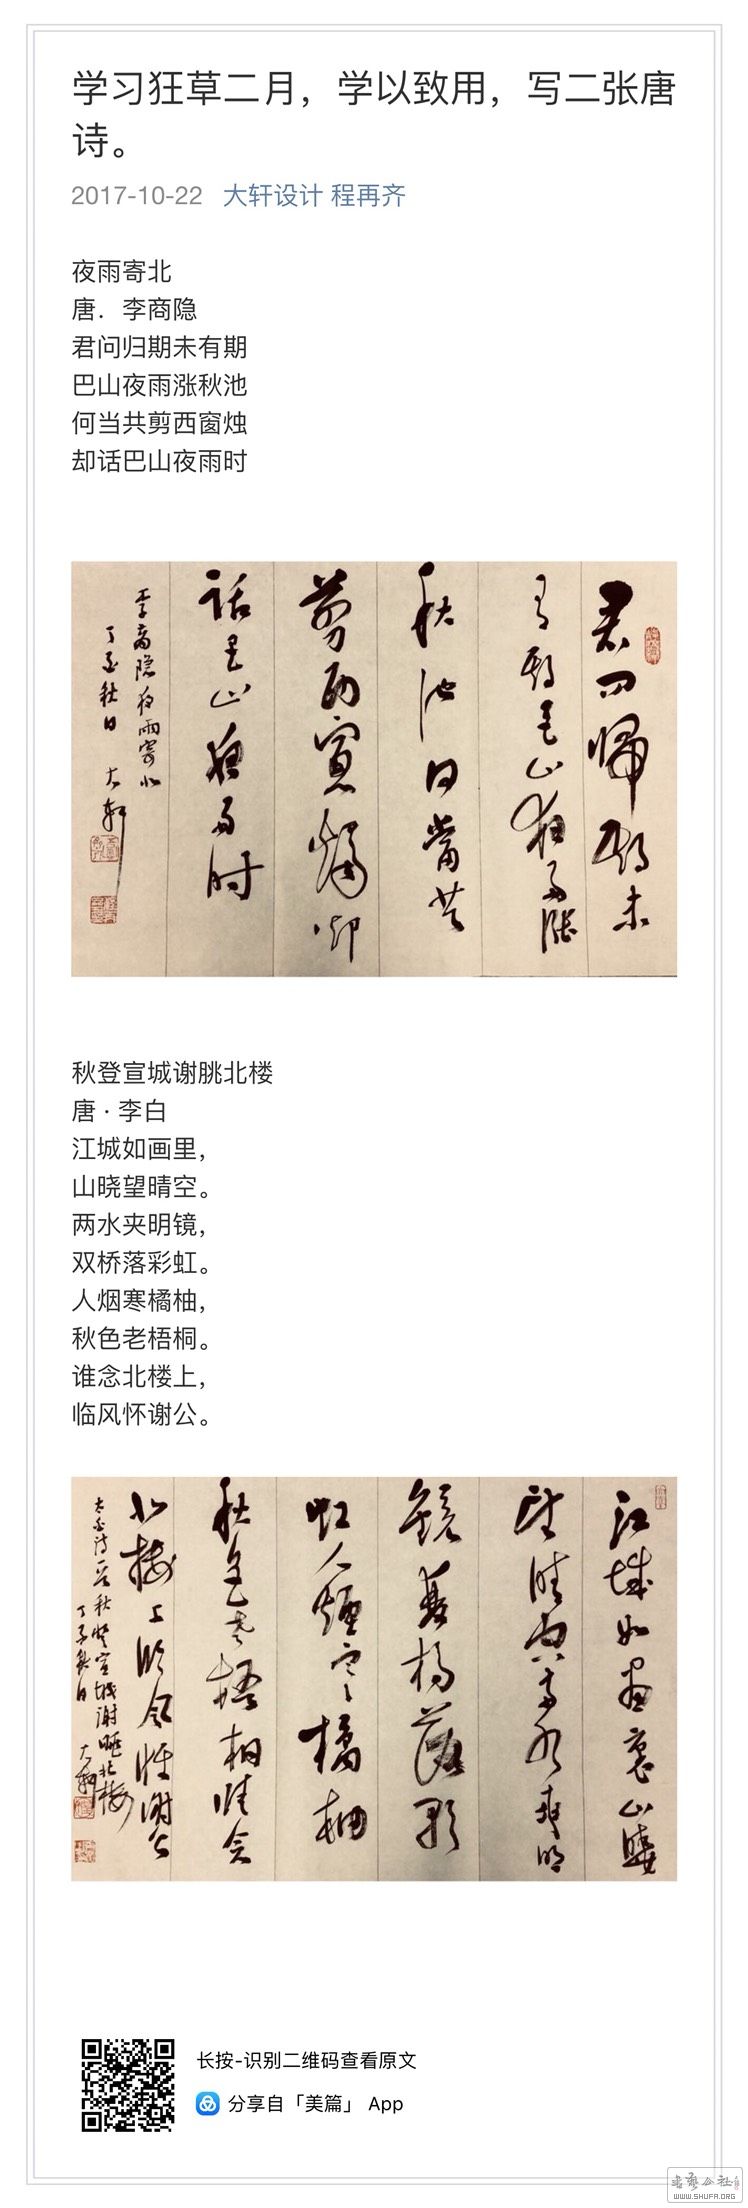 学习狂草二月，学以致用，写二张唐
诗。
2017-10-22 大轩设计 程再齐
夜雨寄北
唐．李商隐
君问归期未有期
巴山夜雨涨秋池
何当共剪西窗烛
却话巴山夜雨时
君问歸期未
有期巴山夜雨漲
秋池何當共
剪西窗燭却
話巴山夜雨时
李商隐夜雨寄北
丁酉秋日 大軒
秋登宣城谢朓北楼
唐 · 李白
江城如画里，
山晓望晴空。
两水夹明镜，
双桥落彩虹。
人烟寒橘柚，
秋色老梧桐。
谁念北楼上，
临风怀谢公。
江城如畫裏山曉
望晴空两水夾明
鏡雙橋落彩
虹人煙寒橘柚
秋色老梧桐誰念
北樓上臨風懷謝公
太白詩一首秋登宣城謝朓北樓
丁酉秋日 大軒
长按-识别二维码查看原文
分享自「美篇」 App
书艺公社
WWW.SHUFA.ORG